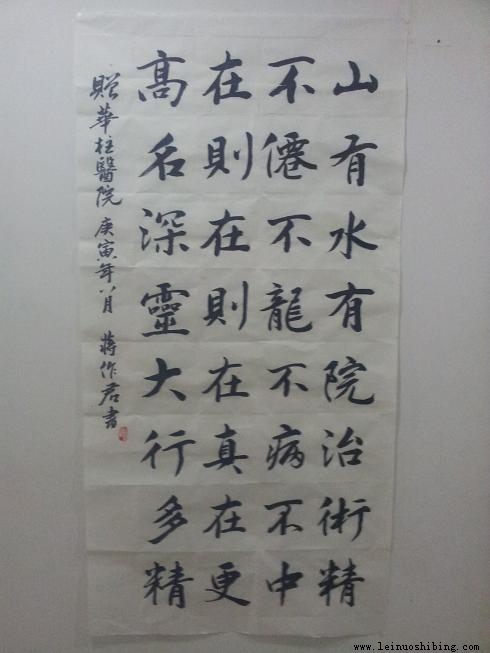 山有水有院治術精
不僊不龍不病不中
在則在則在真在更
高名深靈大行多精
贈華柱醫院 庚寅年八月 蔣作君書
www.leinuoshibing.com